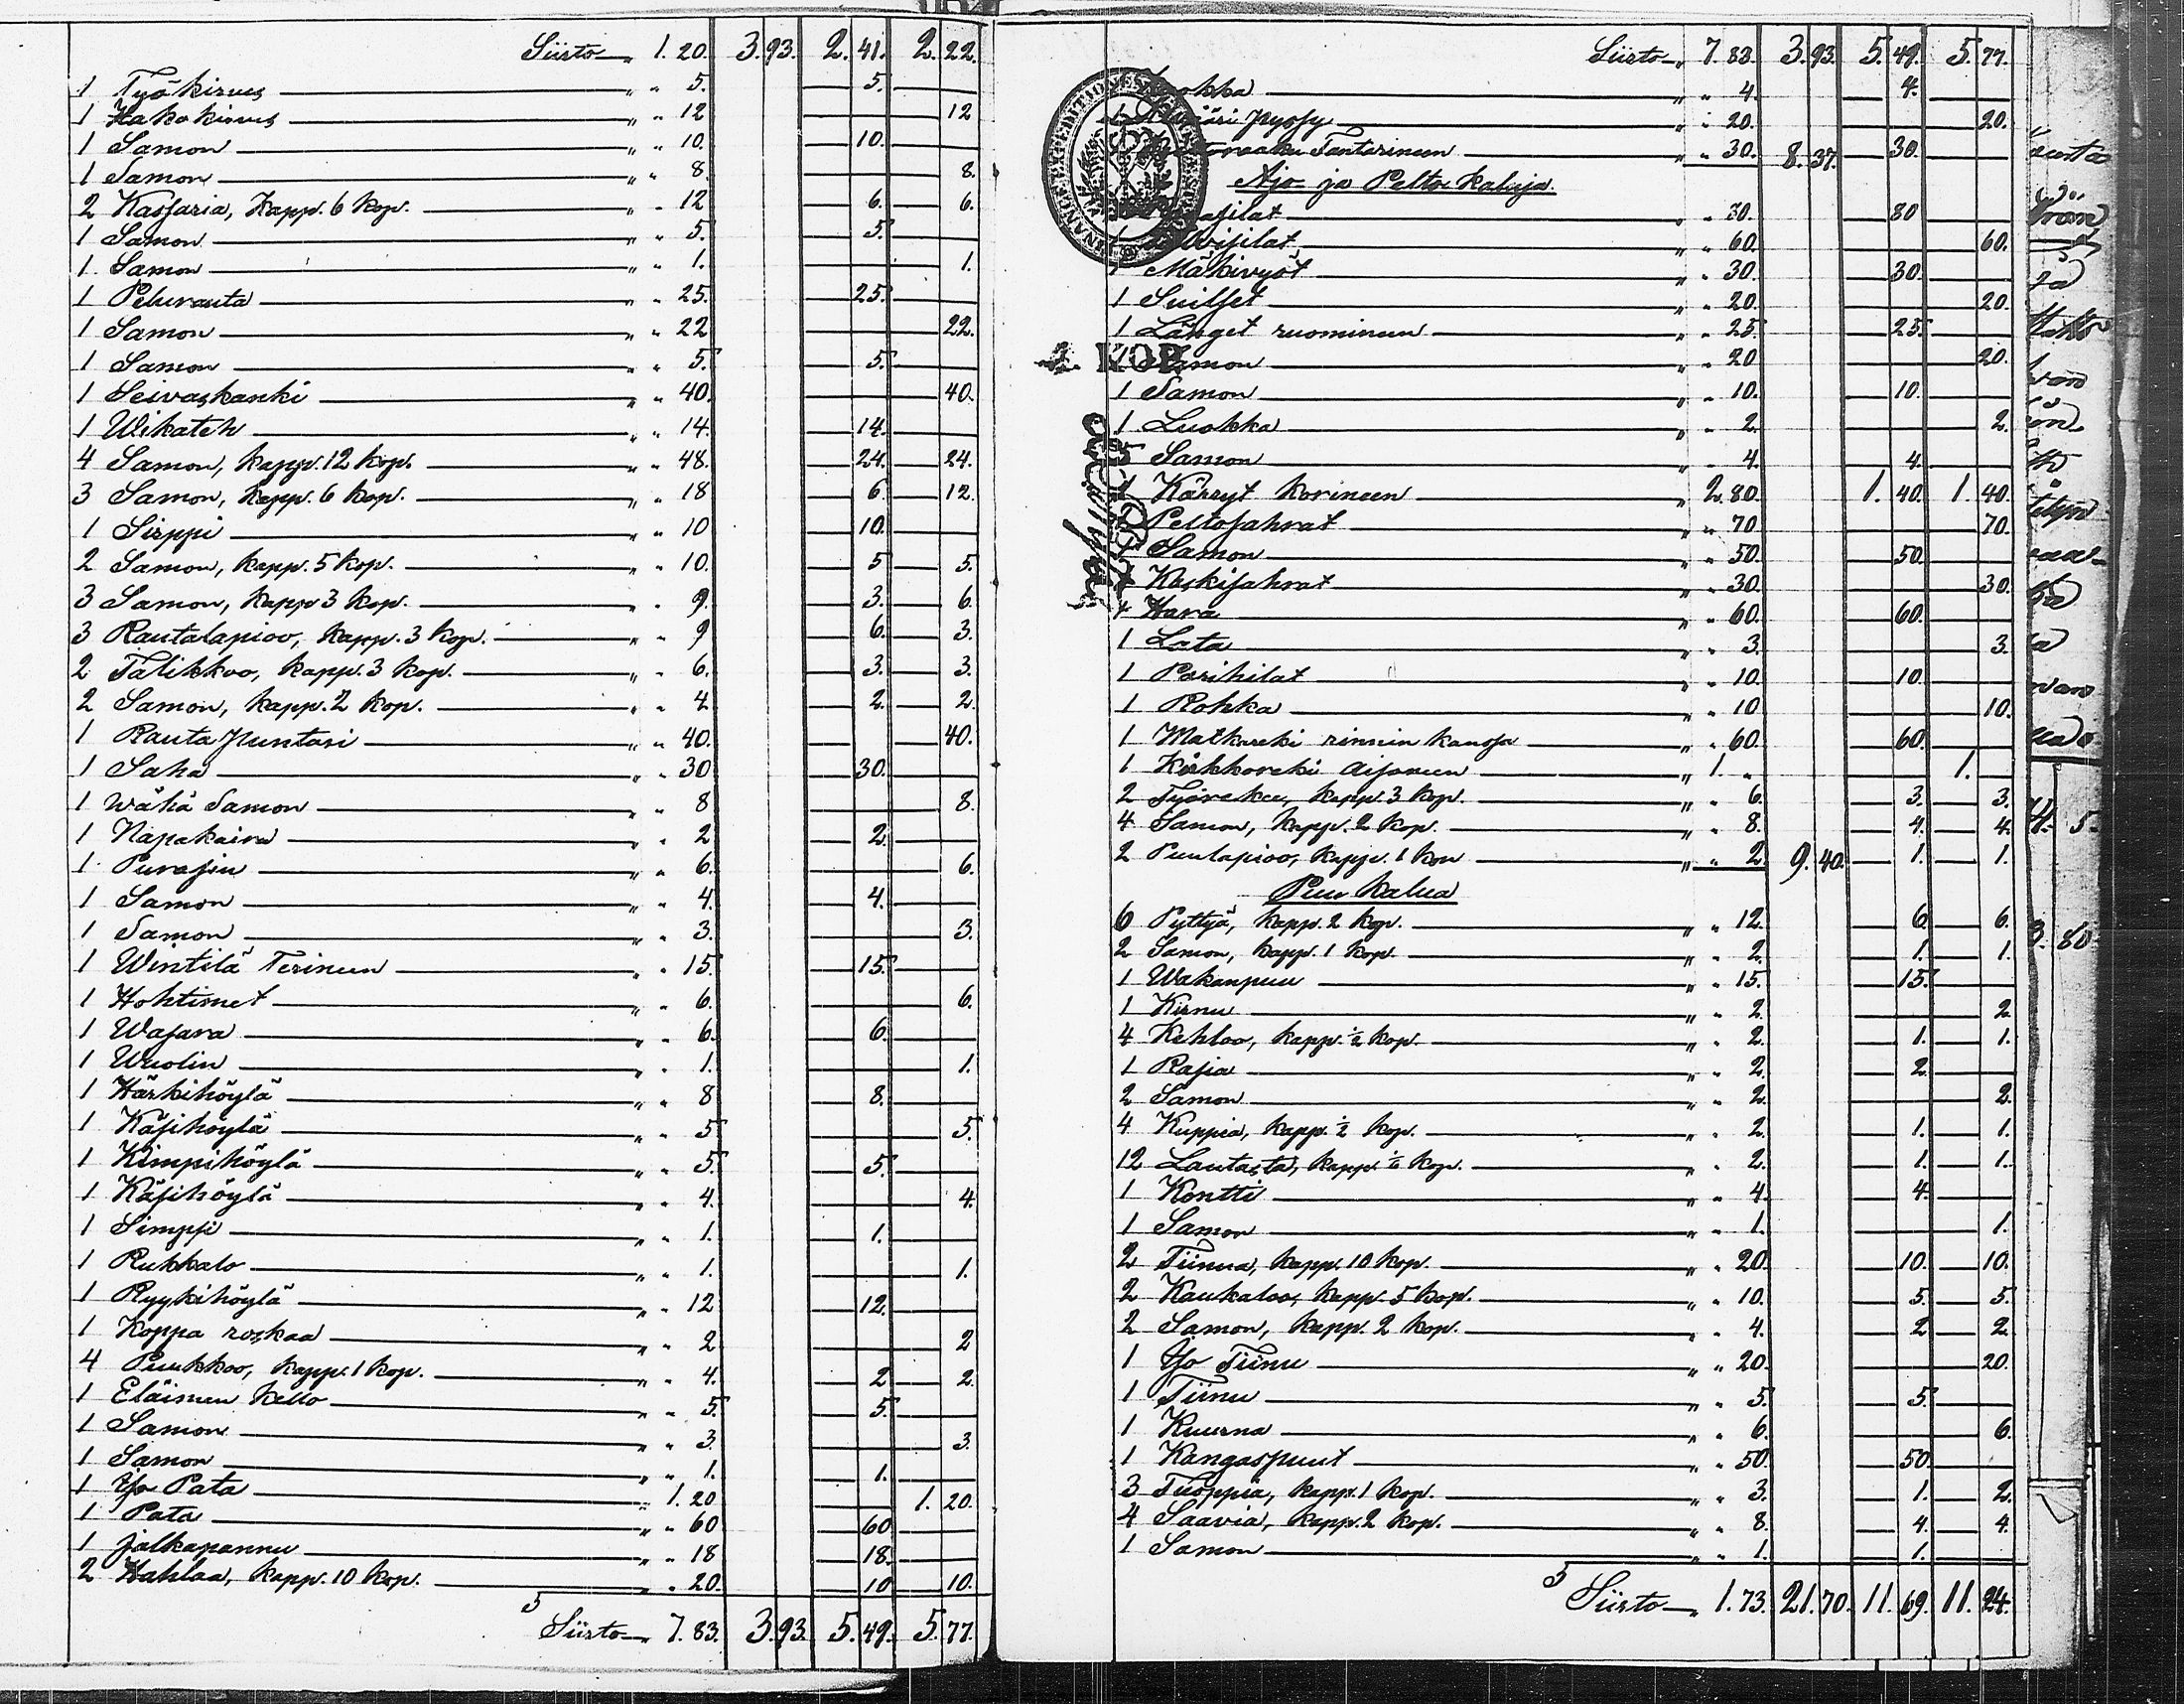 Siirto — 1. 20. 3. 93. 2. 41. 2. 22.
1 Työkirves — „ „ 5. 5.
1 Hakokirves — „ „ 12 12
1 Samon — „ „ 10. 10.
1 Samon — „ „ 8. 8.
2 Kassaria, Kapp. 6 Kop. — „ „ 12 6. 6.
1 Samon — „ „ 5. 5.
1 Samon — „ „ 1. 1.
1 Pelurauta — „ „ 25. 25.
1 Samon — „ „ 22 22.
1 Samon — „ „ 5. 5.
1 Seivaskanki — „ „ 40. 40.
1 Wikateh — „ „ 14. 14.
4 Samon, kapp. 12 kop. — „ „ 48. 24. 24.
3 Samon, kapp. 6 kop. — „ „ 18 6. 12.
1 Sirppi — „ „ 10 10.
2 Samon, kapp. 5 kop. — „ „ 10. 5 5.
3 Samon, kapp 3 kop. — „ „ 9. 3. 6.
3 Rautalapioo, kapp. 3 kop. — „ „ 9 6. 3.
2 Talikkoo, kapp. 3 kop. — „ „ 6. 3. 3.
2 Samon, kapp. 2 kop. — „ „ 4 2. 2.
1 Rauta Puntari — „ „ 40. 40.
1 Saha — „ „ 30 30.
1 wähä Samon — „ „ 8 8.
1 Napakaira — „ „ 2 2.
1 Purasin — „ „ 6. 6.
1 Samon — „ „ 4. 4.
1 Samon — „ „ 3. 3.
1 Wintilä Terineen — „ „ 15 15.
1 Hohtimet — „ „ 6. 6.
1 Wasara — „ „ 6. 6.
1 Wuolin — „ „ 1. 1.
1 Härkihöylä — „ „ 8 8.
1 Käsihöylä — „ „ 5 5.
1 Kimpihöylä — „ „ 5. 5.
1 Käsihöylä — „ „ 4. 4.
1 Simpsi — „ „ 1. 1.
1 Rukkalo — „ „ 1. 1.
1 Ryykihöylä — „ „ 12 12.
1 Koppa roskaa — „ „ 2 2
4 Puukkoo, kapp. 1 kop. — „ „ 4. 2 2.
1 Eläimen Kello — „ „ 5. 5.
1 Samon — „ „ 3. 3.
1 Samon — „ „ 1. 1.
1 Iso Pata — „ 1. 20 1. 20.
1 Pata — „ „ 60 60
1 jalkapannu — „ „ 18 18.
2 Hahlaa, kapp. 10 kop. — „ „ 20. 10 10.
5
Siirto — 7. 83. 3. 93. 5. 49. 5. 77.
Siirto — „ 7. 83. 3. 93. 5. 49. 5. 77.
— „ „ 4. 4.
— „ „ 20. 20.
Tantarineen — „ „ 30. 8. 37. 30.
Ajo- ja Pelto Kaluja.
— „ „ 80
— „ „ 60. 60.
1 Mäkivyöt — „ „ 30. 30.
1 Suitset — „ „ 20. 20.
1 Länget ruomineen — „ „ 25 25.
2 KOP.
1 Samon — „ „ 20 20.
1 Samon — „ „ 10. 10.
1 Luokka — „ „ 2. 2.
Samon — „ „ 4. 4.
1 Kärryt korineen — „ 2. 80. 1. 40. 1. 40.
Peltosahrat — „ „ 70 70.
1 Samon — „ „ 50. 50.
Kaskisahrat — „ „ 30. 30.
4 Hara — „ „ 60. 60.
1 Lata — „ „ 3. 3.
1 Parihilat — „ „ 10. 10.
1 Rohka — „ „ 10 10.
1 Matkareki rinnin kansa — „ „ 60. 60.
1 Kirkkoreki aisoneen — „ 1. „ 1.
2 Työrekee, kapp. 3 kop. — „ „ 6. 3. 3.
4 Samon, kapp. 2 kop. — „ „ 8. 4. 4.
2 Puulapioo, kapp. 1 kop — „ „ 2. 9. 40. 1. 1.
Puu Kalua
6 Pyttyä, kapp. 2 kop. — „ „ 12. 6. 6.
2 Samon, kapp. 1 kop. — „ „ 2. 1. 1.
1 Wakanpuu — „ „ 15. 15.
1 Kirnu — „ „ 2. 2
4 Kehloo, kapp. ½ kop. — „ „ 2. 1. 1.
1 Rasia — „ „ 2. 2.
2 Samon — „ „ 2. 2.
4 Kuppia, kapp. ½ kop. — „ „ 2. 1. 1.
12 Lautasta, kapp. ⅙ kop. — „ „ 2. 1. 1.
1 Kontti — „ „ 4. 4.
1 Samon — „ „ 1. 1.
2 Tiinua, kapp. 10 kop. — „ „ 20. 10. 10.
2 Kaukaloo, kapp. 5 kop. — „ „ 10. 5. 5.
2 Samon, kapp. 2 kop. — „ „ 4. 2 2.
1 Iso Tiinu — „ „ 20. 20.
1 Tiinu — „ „ 5. 5.
1 Kuurna — „ „ 6. 6.
1 Kangaspuut — „ „ 50. 50.
3 Tuoppia, kapp. 1 kop. — „ „ 3. 1. 2.
4 Saavia, kapp. 2 kop. — „ „ 8. 4. 4.
1 Samon — „ „ 1. 1.
5
Siirto — „ 1. 73. 21. 70. 11. 69. 11. 24.